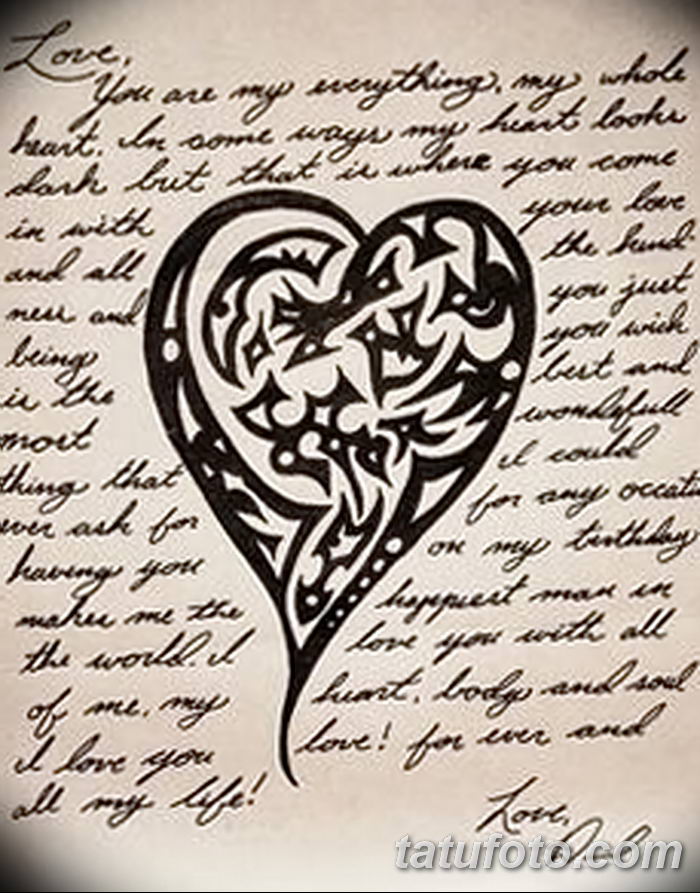 Love,
You are my everything, my whole
heart. In some ways my heart looks
dark but that is where you come
in with your love
and all the kind
ness and you just
being you wich
is the best and
most wondefull
thing that I could
ever ask for for any occati
having you on my birthday
makes me the happiest man in
the world. I love you with all
of me, my heart, body and soul
I love you love! for ever and
all my life!
Love,
tatufoto.com